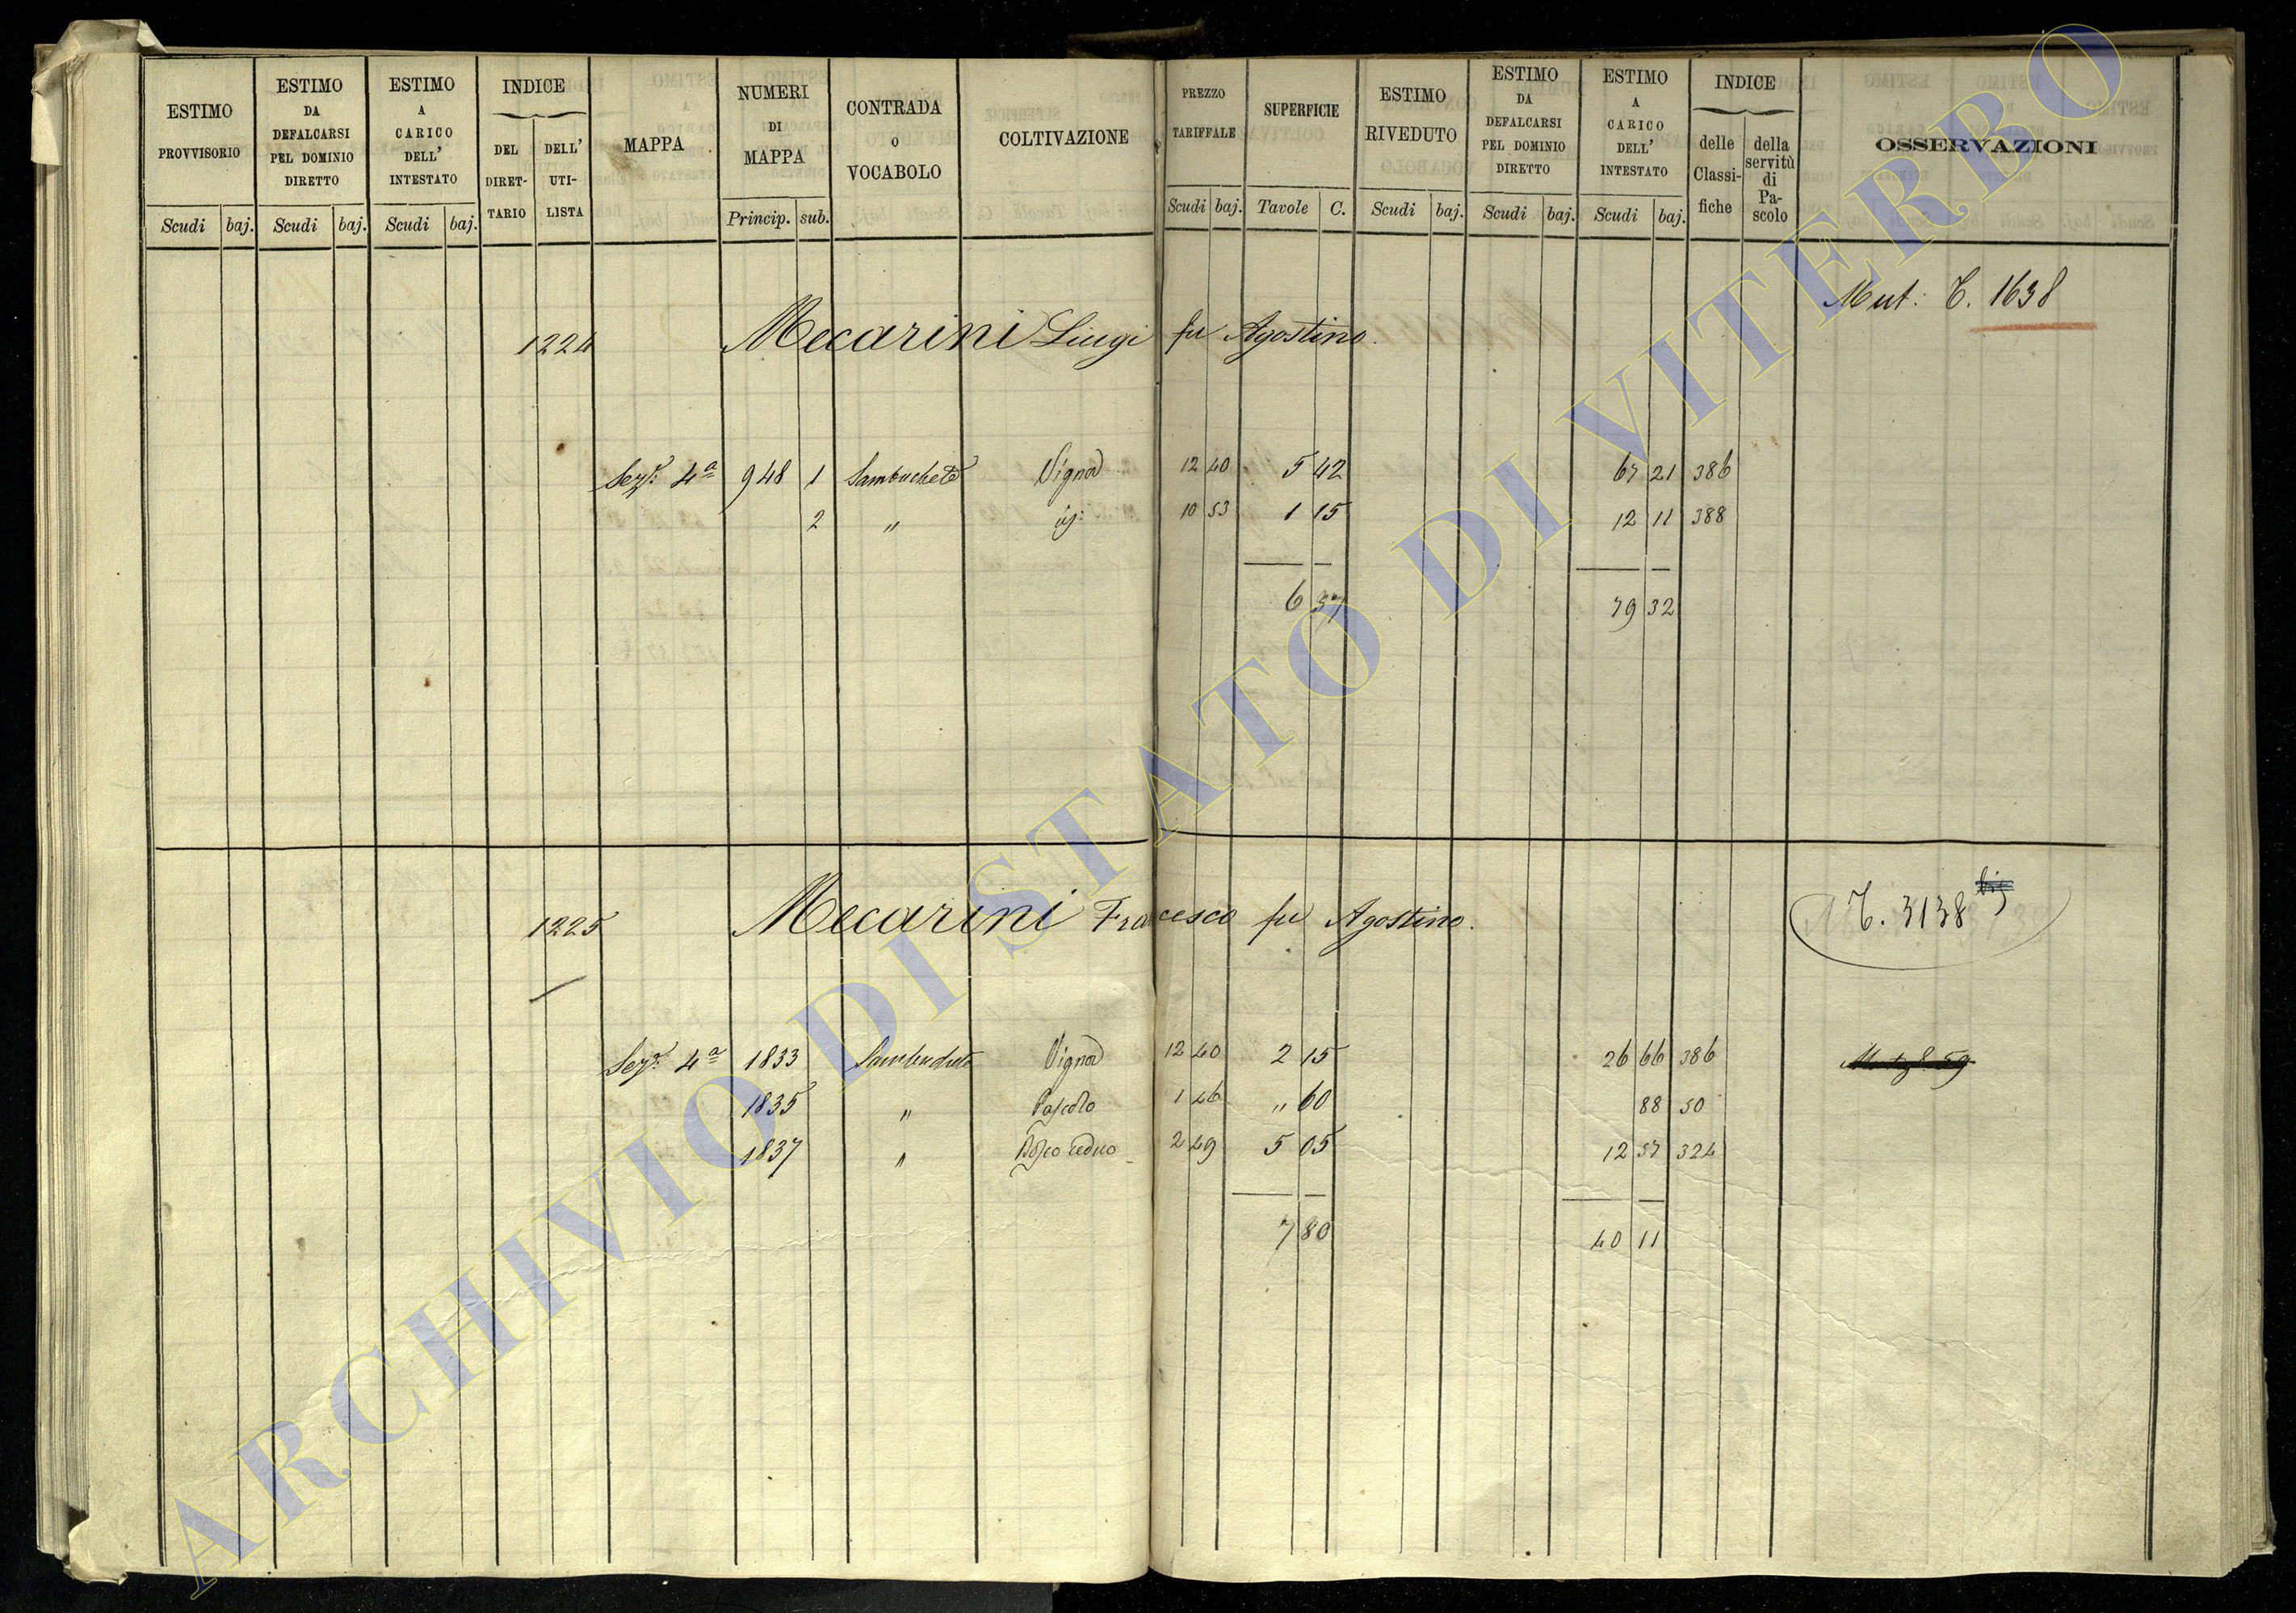 ESTIMO PROVVISORIO
ESTIMO DA DEFALCARSI PEL DOMINIO DIRETTO
ESTIMO A CARICO DELL' INTESTATO
INDICE
DEL DIRET-TARIO
DELL' UTI-LISTA
MAPPA
NUMERI DI MAPPA
CONTRADA O VOCABOLO
COLTIVAZIONE
PREZZO TARIFFALE
SUPERFICIE
ESTIMO RIVEDUTO
ESTIMO DA DEFALCARSI PEL DOMINIO DIRETTO
ESTIMO A CARICO DELL' INTESTATO
INDICE
delle Classi-fiche
della servitù di Pa-scolo
OSSERVAZIONI
Scudi baj. Scudi baj. Scudi baj. Princip. sub. Scudi baj. Tavole C. Scudi baj. Scudi baj. Scudi baj.
Mut: T. 1638
1224 Mecarini Luigi fu Agostino.
Sez.e 4a 948 1 Sambucheto Vigna 12 40 5 42 67 21 386
2 " id: 10 53 1 15 12 11 388
6 57 79 32
T. 3138 bis
1225 Mecarini Francesco fu Agostino.
Sez.e 4a 1833 Sambucheto Vigna 12 40 2 15 26 66 386
1835 " Pascolo 1 46 " 60 88 50
1837 " Bosco ceduo 2 49 5 05 12 57 324
7 80 40 11
ARCHIVIO DI STATO DI VITERBO